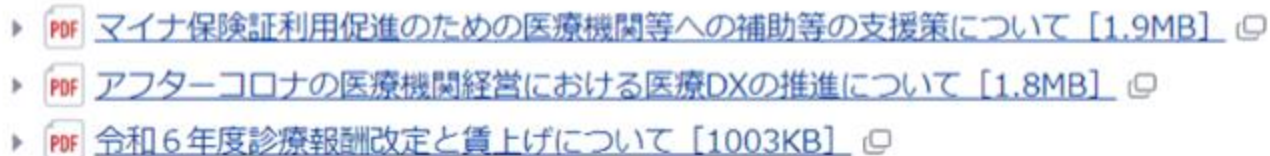 PDF マイナ保険証利用促進のための医療機関等への補助等の支援策について［1.9MB］
PDF アフターコロナの医療機関経営における医療DXの推進について［1.8MB］
PDF 令和６年度診療報酬改定と賃上げについて［1003KB］